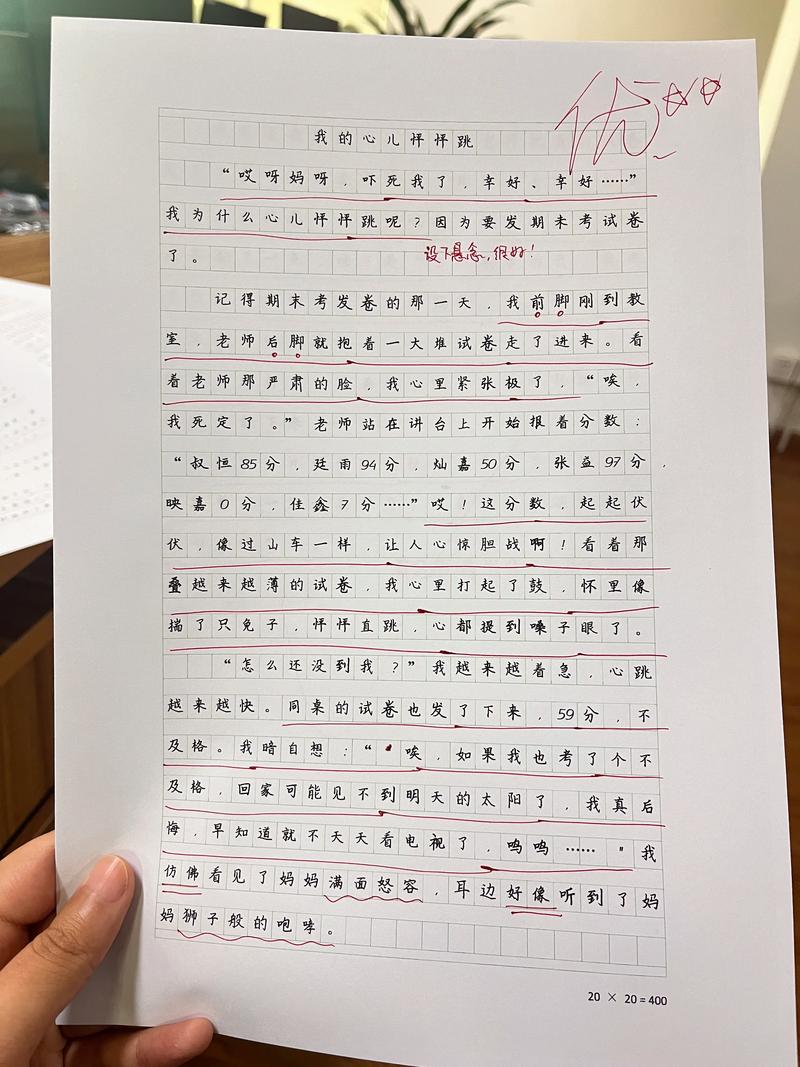 优
我的心儿怦怦跳
“哎呀妈呀，吓死我了，幸好、幸好……”
我为什么心儿怦怦跳呢？因为要发期末考试卷
了。
设下悬念，很好！
记得期末考发卷的那一天，我前脚刚到教
室，老师后脚就抱着一大堆试卷走了进来。看
着老师那严肃的脸，我心里紧张极了，“唉，
我死定了。”老师站在讲台上开始报着分数：
“叔恒85分，廷雨94分，灿嘉50分，张益97分，
映嘉0分，佳鑫7分……”哎！这分数，起起伏
伏，像过山车一样，让人心惊胆战啊！看着那
叠越来越薄的试卷，我心里打起了鼓，怀里像
揣了只兔子，怦怦直跳，心都提到嗓子眼了。
“怎么还没到我？”我越来越着急，心跳
越来越快。同桌的试卷也发了下来，59分，不
及格。我暗自想：“唉，如果我也考了个不
及格，回家可能见不到明天的太阳了，我真后
悔，早知道就不天天看电视了，呜呜……"我
仿佛看见了妈妈满面怒容，耳边好像听到了妈
妈狮子般的咆哮。
20 × 20 = 400